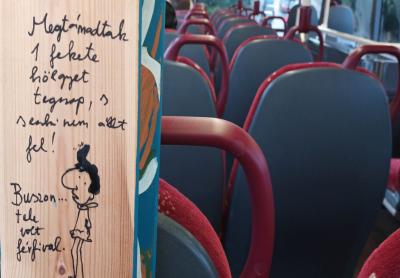 Megtámadtak
1 fekete
hölgyet
tegnap, s
senki nem állt
fel!
Buszon...
tele
volt
férfival.